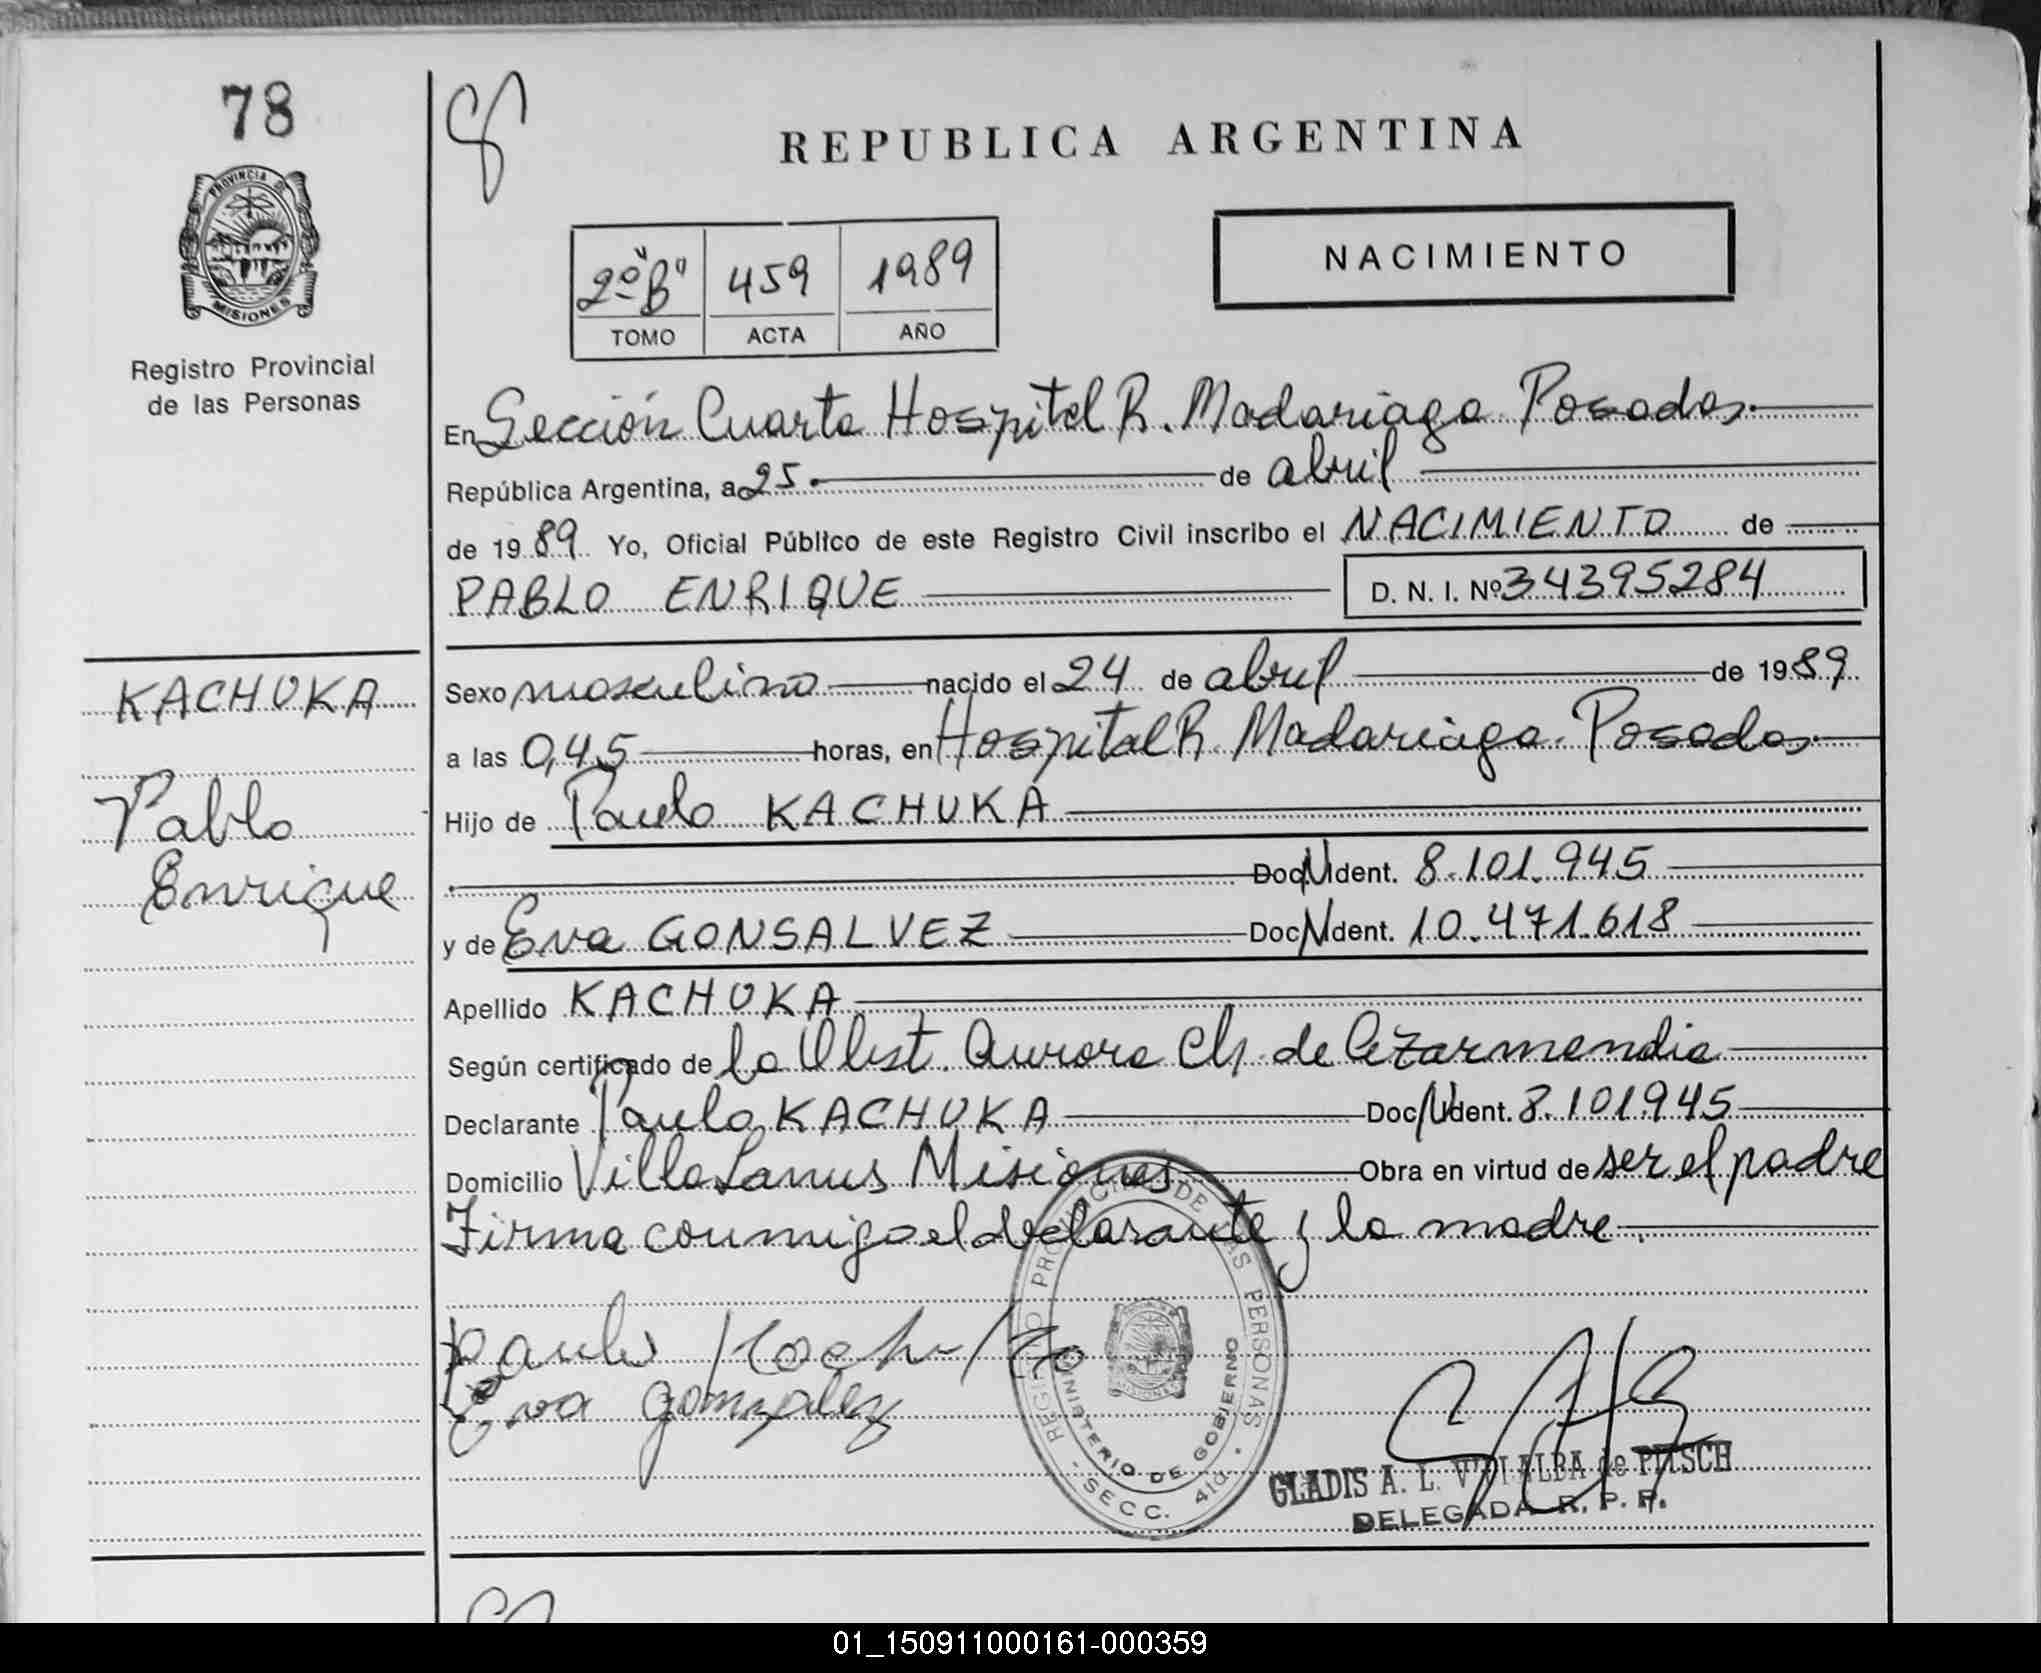 78
PROVINCIA DE
MISIONES
Registro Provincial
de las Personas
REPUBLICA ARGENTINA
2º "B" 459 1989
TOMO ACTA AÑO
NACIMIENTO
En Sección Cuarta Hospital R. Madariaga Posadas.
República Argentina, a 25 de abril
de 1989 Yo, Oficial Público de este Registro Civil inscribo el NACIMIENTO de
PABLO ENRIQUE D. N. I. Nº 34395284
KACHUKA
Pablo
Enrique
Sexo masculino nacido el 24 de abril de 1989
a las 0,45 horas, en Hospital R. Madariaga. Posadas
Hijo de Paulo KACHUKA
Doc. Ident. 8.101.945
y de Eva GONSALVEZ Doc. Ident. 10.471.618
Apellido KACHUKA
Según certificado de la Obst. Aurora Ch. de Azarmendia
Declarante Paulo KACHUKA Doc. Ident. 8.101945
Domicilio Villa Lanus Misiones Obra en virtud de ser el padre
Firma conmigo el declarante y la madre.
Eva gonzalez
REGISTRO PROVINCIAL DE LAS PERSONAS
MINISTERIO DE GOBIERNO
- SECC. 4ta -
GLADIS A. L. VILLALBA de PITSCH
DELEGADA R. P. P.
01_150911000161-000359